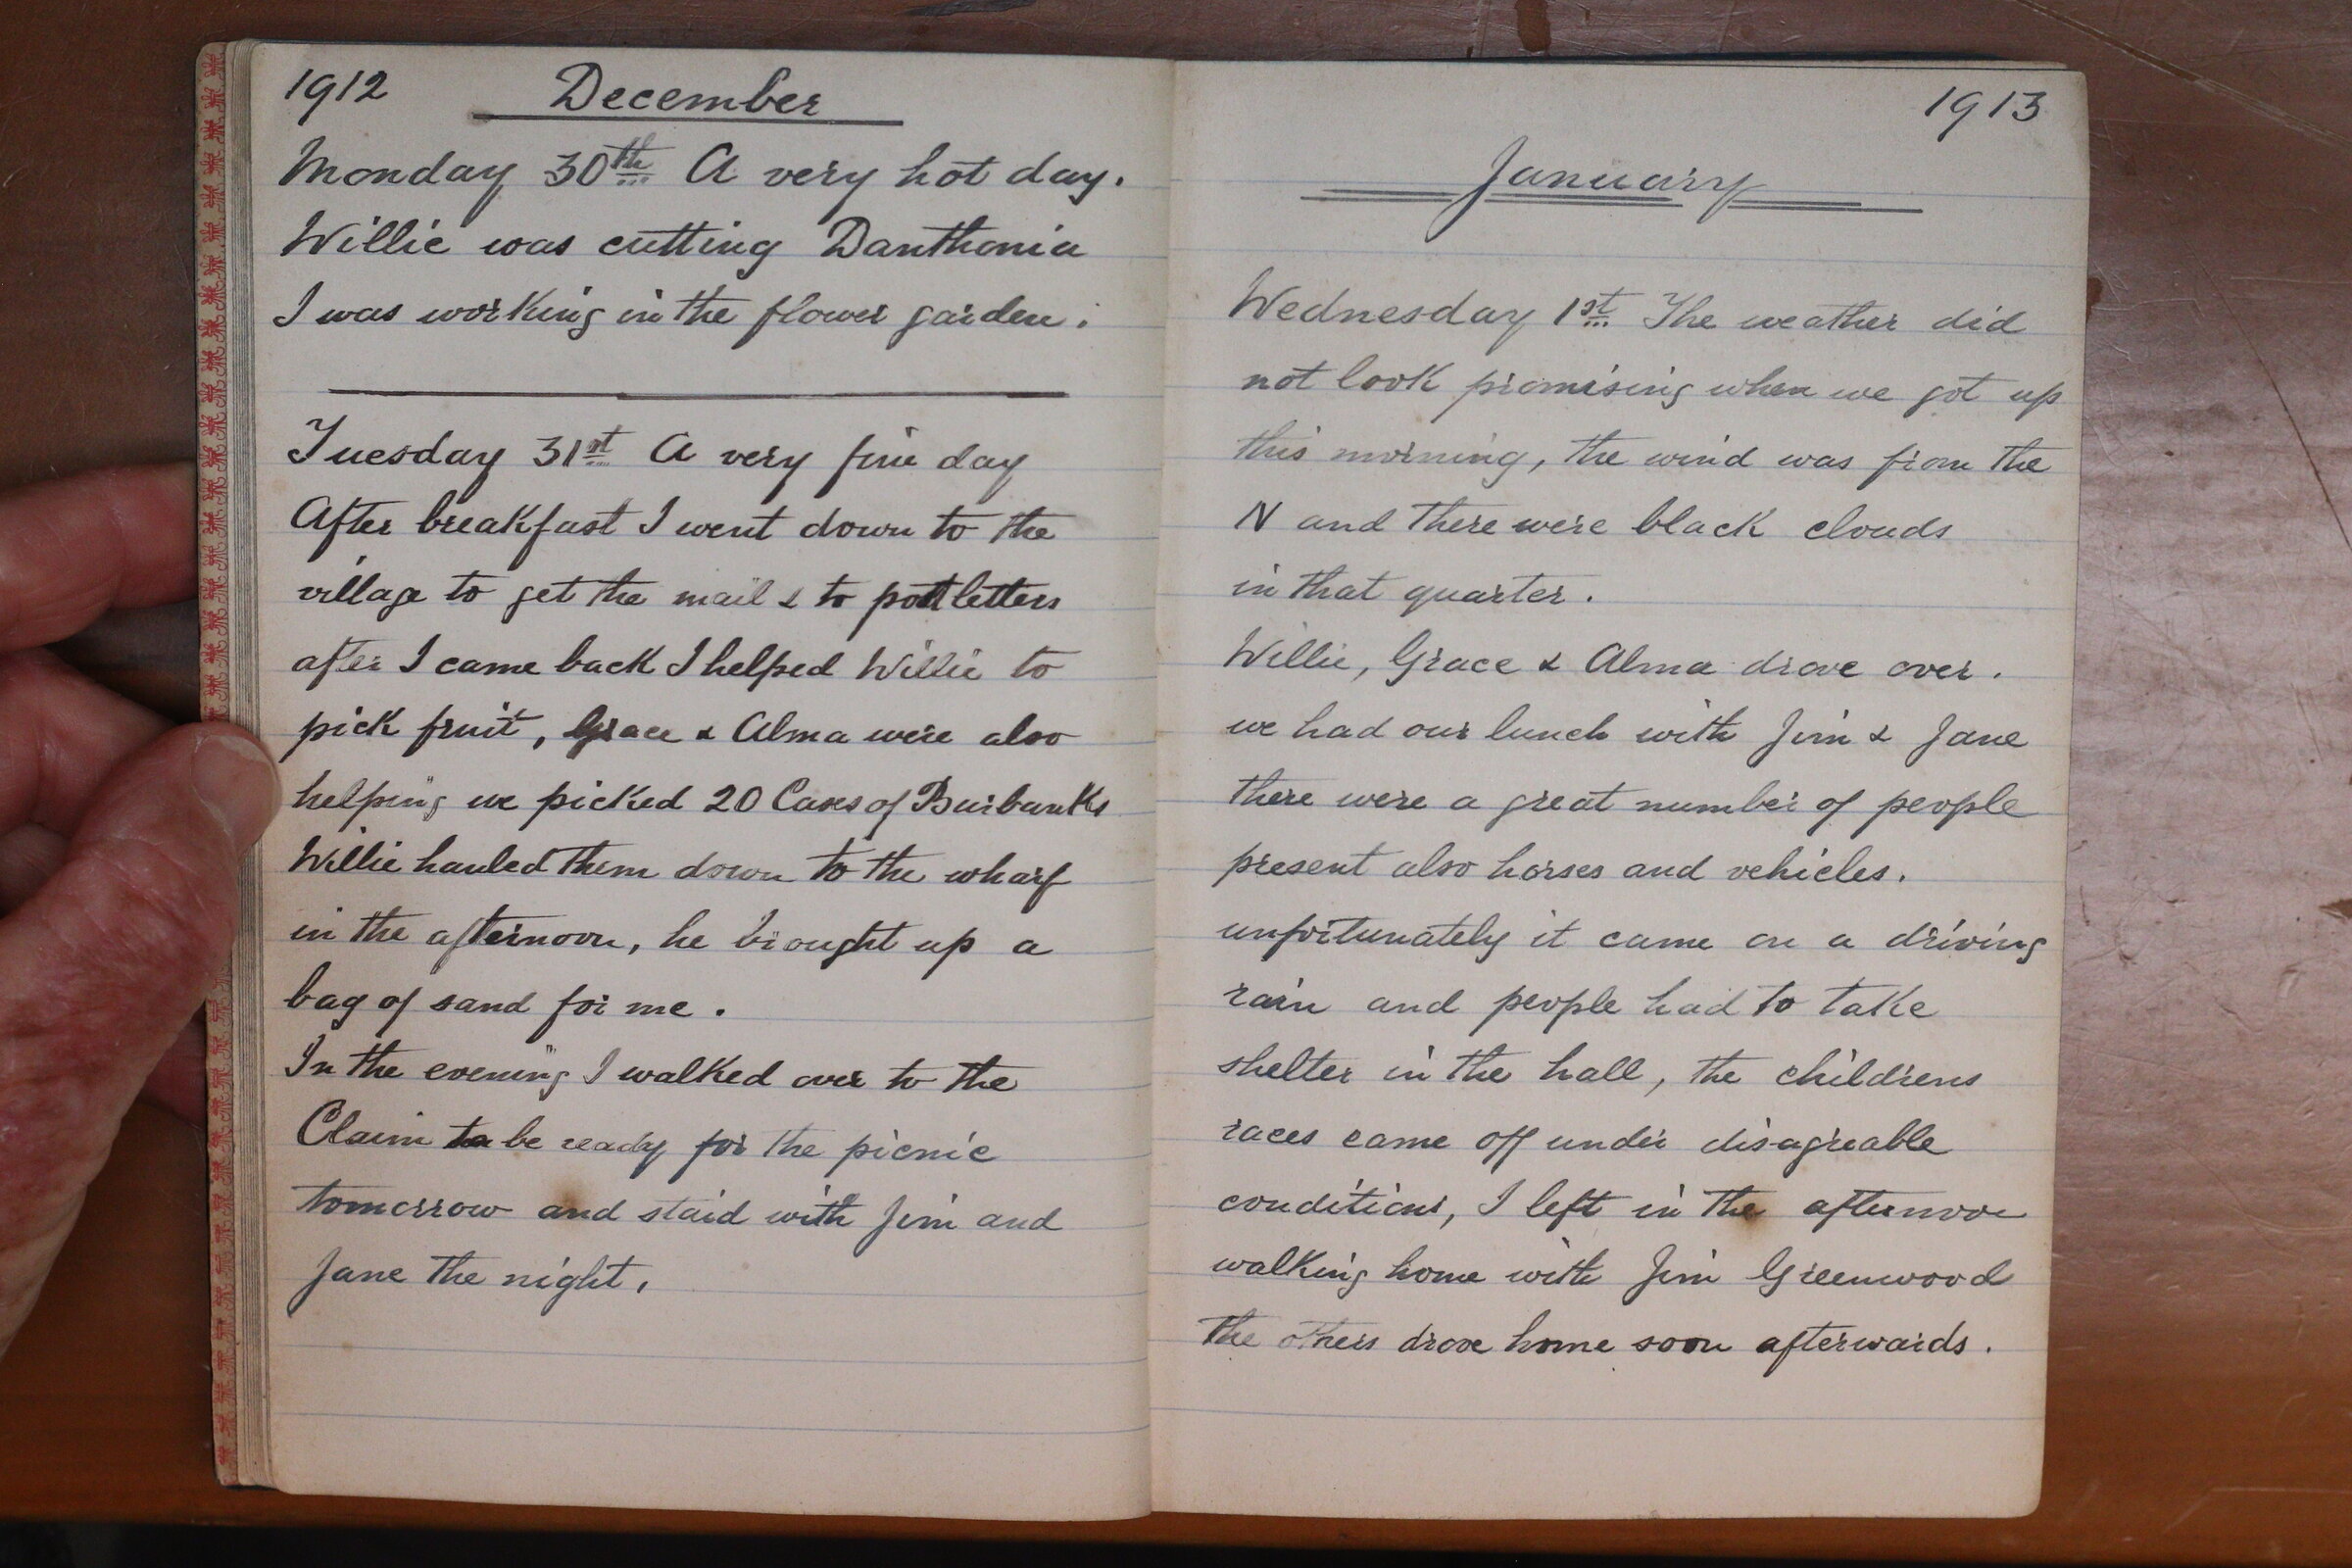 1912 December
Monday 30th A very hot day.
Willie was cutting Danthonia
I was working in the flower garden.
Tuesday 31st A very fine day
After breakfast I went down to the
village to get the mail & to post letters
after I came back I helped Willie to
pick fruit, Grace & Alma were also
helping we picked 20 Cases of Burbanks
Willie hauled them down to the wharf
in the afternoon, he brought up a
bag of sand for me.
In the evening I walked over to the
Claim to be ready for the picnic
tomorrow and staid with Jim and
Jane the night.
1913
January
Wednesday 1st The weather did
not look promising when we got up
this morning, the wind was from the
N and there were black clouds
in that quarter.
Willie, Grace & Alma drove over.
we had our lunch with Jim & Jane
there were a great number of people
present also horses and vehicles.
unfortunately it came on a driving
rain and people had to take
shelter in the hall, the childrens
races came off under disagreable
conditions, I left in the afternoon
walking home with Jim Greenwood
the others drove home soon afterwards.